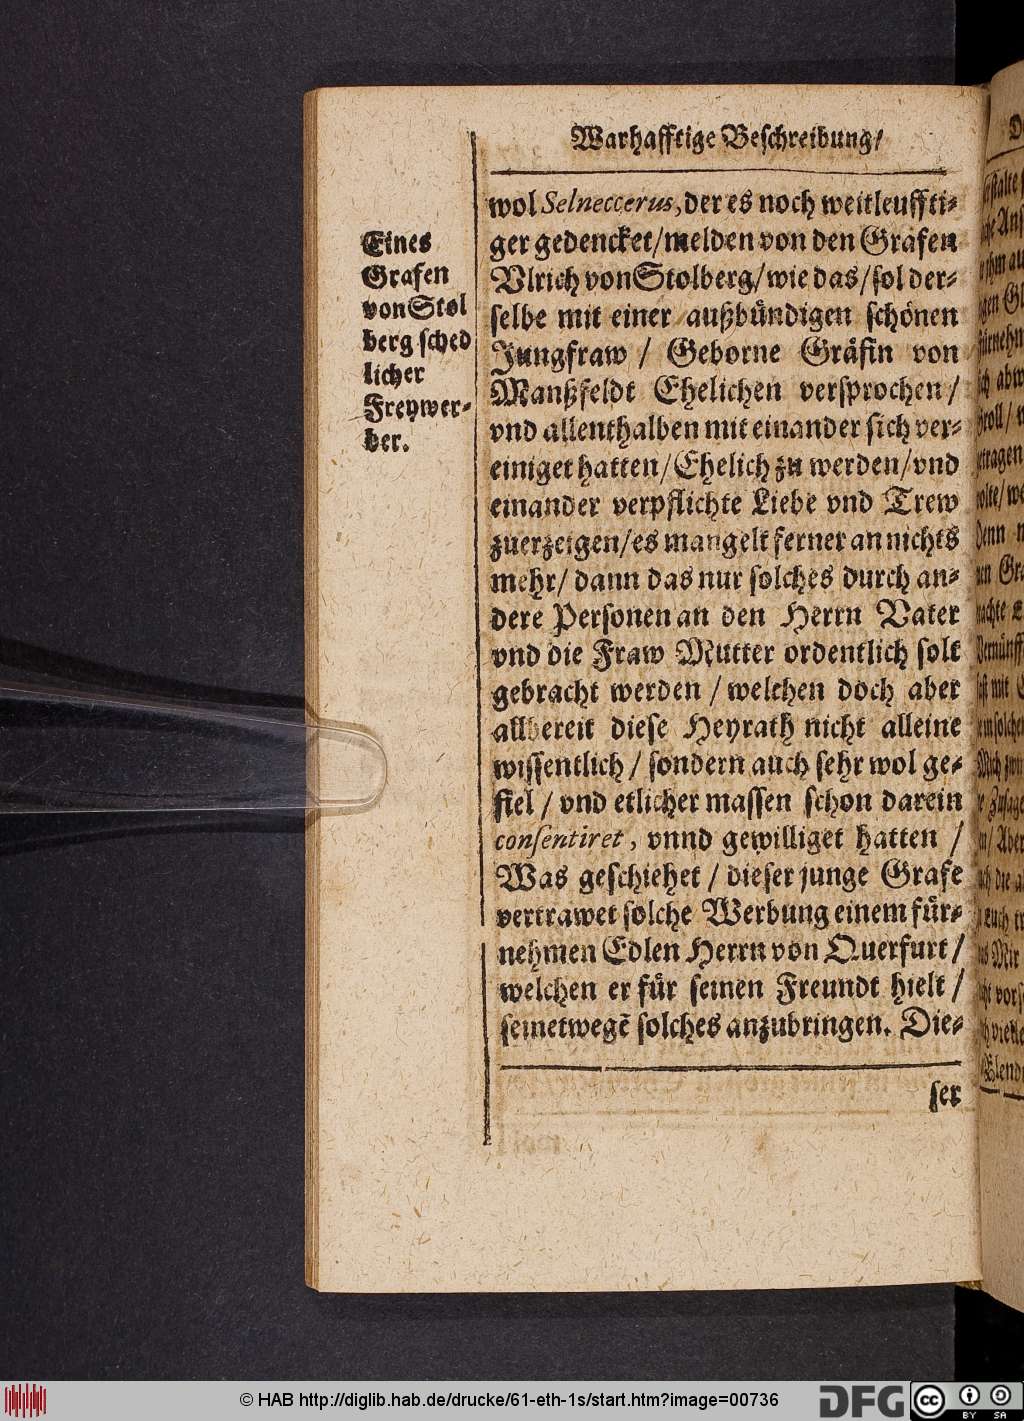 Warhafftige Beschreibung/
Eines
Grafen
von Stol
berg sched
licher
Freywer-
ber.
wol Selneccerus, der es noch weitleuffti-
ger gedencket/melden von den Grafen
Vlrich von Stolberg/wie das/sol der-
selbe mit einer außbündigen schönen
Jungfraw / Geborne Gräfin von
Manßfeldt Ehelichen versprochen/
vnd allenthalben mit einander sich ver-
einiget hatten/Ehelich zu werden/vnd
einander verpflichte Liebe vnd Trew
zuerzeigen/es mangelt ferner an nichts
mehr/ dann das nur solches durch an-
dere Personen an den Herrn Vater
vnd die Fraw Mutter ordentlich solt
gebracht werden / welchen doch aber
allbereit diese Heyrath nicht alleine
wissentlich / sondern auch sehr wol ge-
fiel / vnd etlicher massen schon darein
consentiret, vnnd gewilliget hatten /
Was geschiehet / dieser junge Grafe
vertrawet solche Werbung einem für-
nehmen Edlen Herrn von Querfurt /
welchen er für seinen Freundt hielt /
seinetwegē solches anzubringen. Die-
ser
© HAB http://diglib.hab.de/drucke/61-eth-1s/start.htm?image=00736
DFG
cc
BY SA